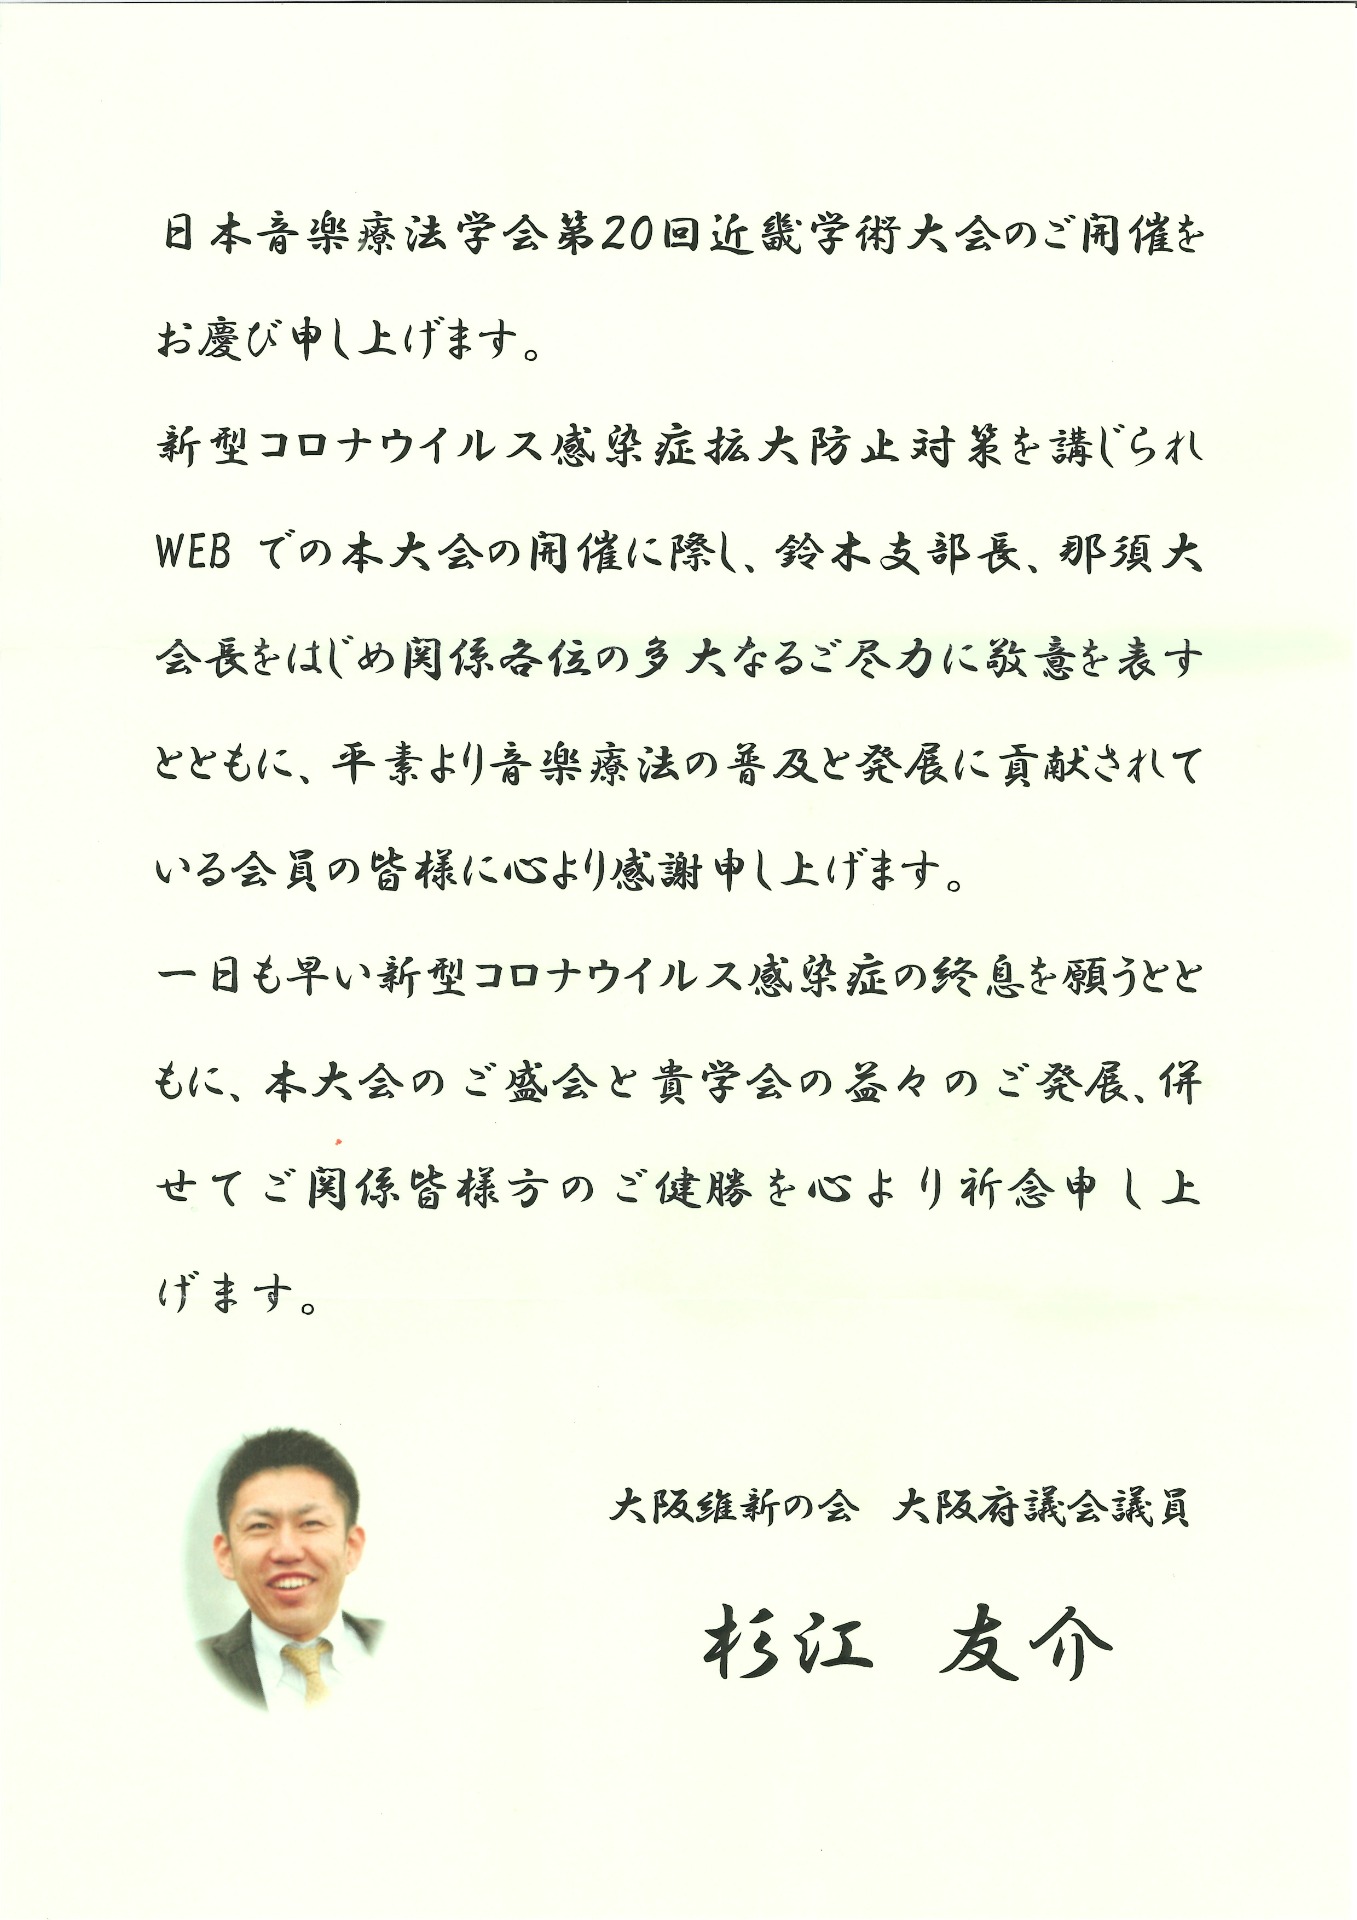 日本音楽療法学会第20回近畿学術大会のご開催を
お慶び申し上げます。
新型コロナウイルス感染症拡大防止対策を講じられ
WEB での本大会の開催に際し、鈴木支部長、那須大
会長をはじめ関係各位の多大なるご尽力に敬意を表す
とともに、平素より音楽療法の普及と発展に貢献されて
いる会員の皆様に心より感謝申し上げます。
一日も早い新型コロナウイルス感染症の終息を願うとと
もに、本大会のご盛会と貴学会の益々のご発展、併
せてご関係皆様方のご健勝を心より祈念申し上
げます。
大阪維新の会　大阪府議会議員
杉江　友介